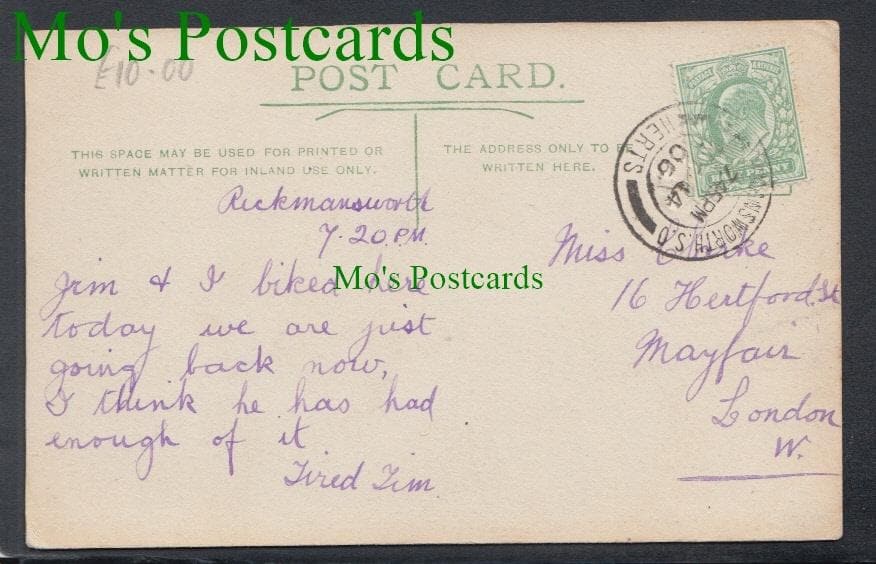 Mo's Postcards
£10.00
POST CARD.
THIS SPACE MAY BE USED FOR PRINTED OR
WRITTEN MATTER FOR INLAND USE ONLY.
THE ADDRESS ONLY TO BE
WRITTEN HERE.
HERTS
06
Rickmansworth
7.20 P.M.
Jim & I biked here
today we are just
going back now,
I think he has had
enough of it
Tired Tim
Mo's Postcards
Miss
16 Hertford. St
Mayfair
London
W.